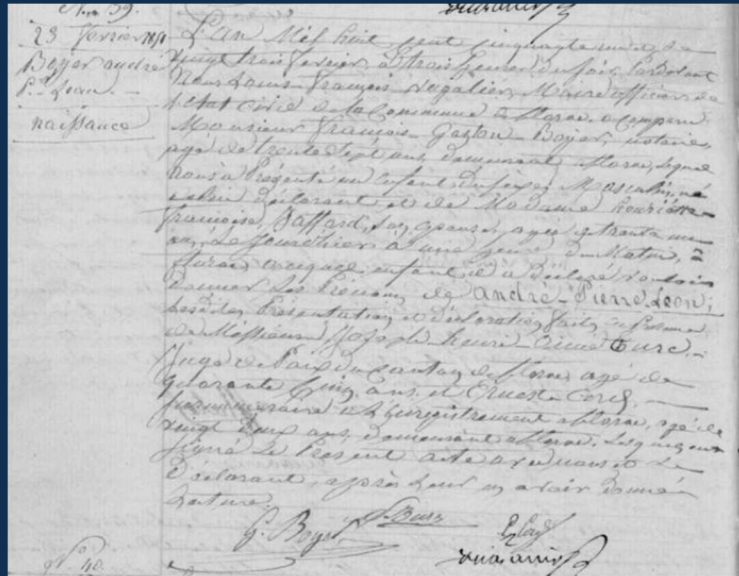 N° 39.
23 février 1851
Boyer andré
P.re Léon.
naissance
L'an Mil huit cent cinquante un et le
vingt trois février à trois heures du soir, Pardevant
Nous Louis François Maire officier de
l'état civil de la Commune de florac, a comparu
Monsieur François Boyer, notaire,
agé de trente sept ans, demeurant à florac, lequel
nous a Présenté un enfant du sexe Masculin, né
de lui déclarant et de Madame henriette
françoise Paffard, son épouse, agée de trente un
ans, Le Jour d'hier à une heure du Matin, à
florac, auquel enfant il a déclaré vouloir
donner Les Prénoms de andré-Pierre Léon;
Lesdites Présentation et déclaration faites en présence
de Messieurs Joseph henri Turc,
Juge de Paix du canton de florac, agé de
quarante cinq ans, et Ernest
surnuméraire à l'Enregistrement à florac, agé de
vingt deux ans, demeurant à florac. Lesquels ont
signé Le Présent acte avec nous et Le
Déclarant, après Leur en avoir donné
Lecture.
G. Boyer
N° 40